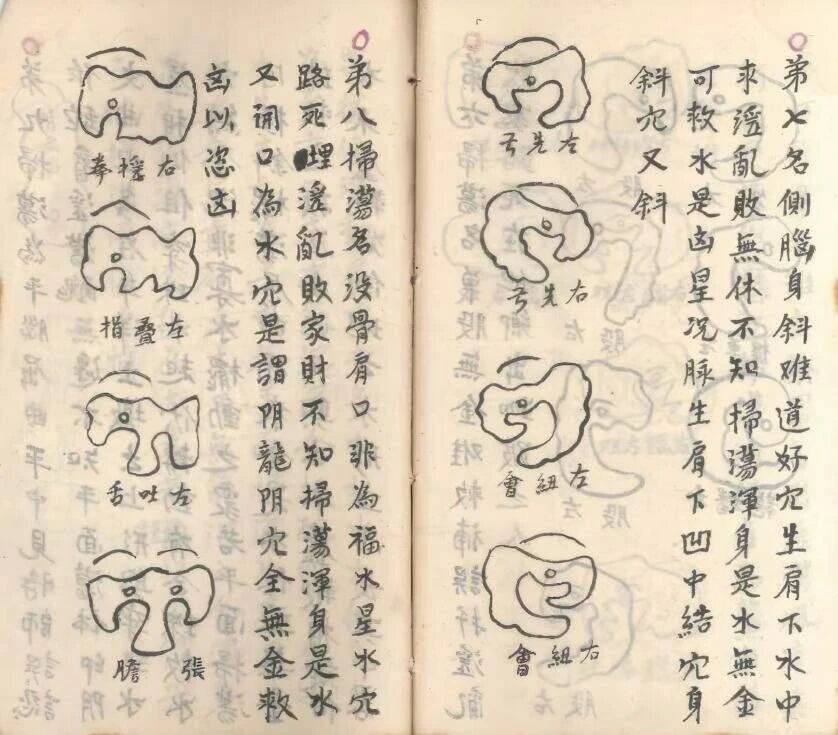 弟七名側腦身斜难道好穴生肩下水中
求滛亂敗無休不知掃蕩渾身是水無金
可救水是凶星况脉生肩下凹中結穴身
斜穴又斜
左先弓
右先弓
左紐會
右紐會
弟八掃蕩名没骨肩口非為福水星水穴
路死埋滛亂敗家財不知掃蕩渾身是水
又開口為水穴是謂阴龍阴穴全無金救
凶以恣凶
右拳
左叠指
左吐舌
張膽